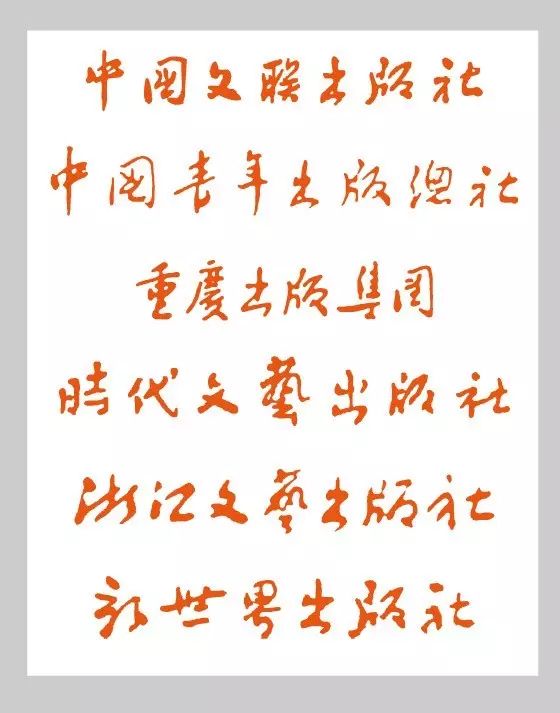 中國文联出版社
中国青年出版總社
重慶出版集团
時代文藝出版社
浙江文藝出版社
新世界出版社